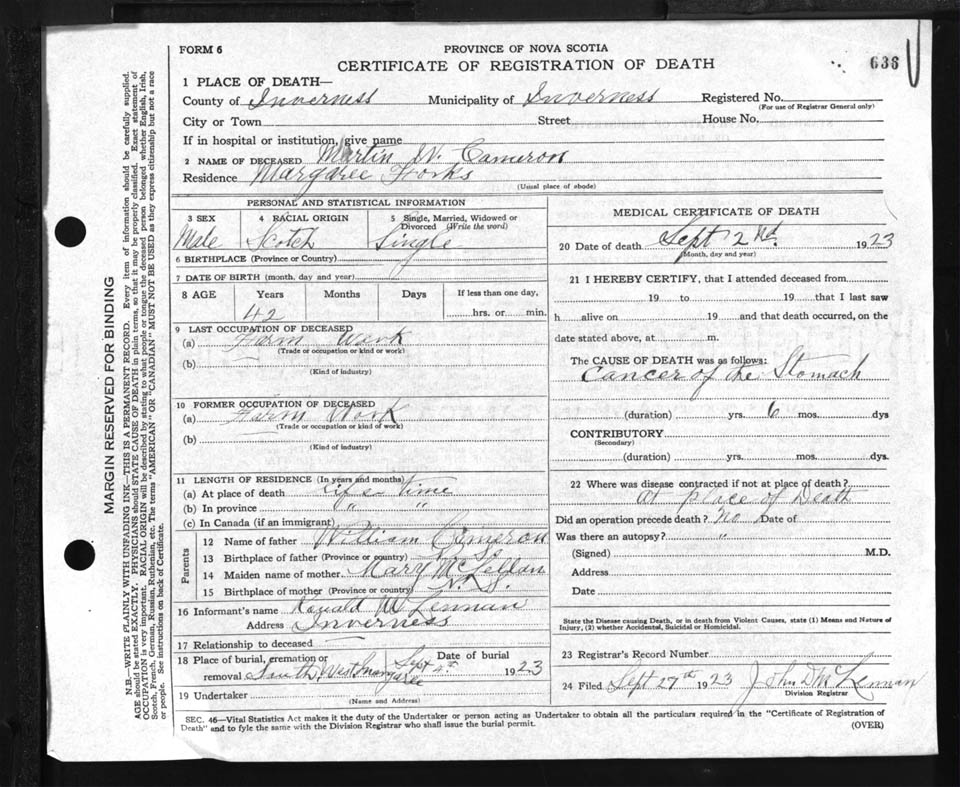 FORM 6
PROVINCE OF NOVA SCOTIA
CERTIFICATE OF REGISTRATION OF DEATH
636
1 PLACE OF DEATH—
County of Inverness Municipality of Inverness Registered No.
(For use of Registrar General only)
City or Town Street House No.
If in hospital or institution, give name
2 NAME OF DECEASED Martin W. Cameron
Residence Margaree Forks
(Usual place of abode)
PERSONAL AND STATISTICAL INFORMATION
3 SEX 4 RACIAL ORIGIN 5 Single, Married, Widowed or Divorced (Write the word)
Male Scotch Single
6 BIRTHPLACE (Province or Country)
7 DATE OF BIRTH (month, day and year)
8 AGE Years Months Days If less than one day,
42 hrs. or min.
9 LAST OCCUPATION OF DECEASED
(a) Farm Work
(Trade or occupation or kind or work)
(b)
(Kind of industry)
10 FORMER OCCUPATION OF DECEASED
(a) Farm Work
(Trade or occupation or kind of work)
(b)
(Kind of industry)
11 LENGTH OF RESIDENCE (In years and months)
(a) At place of death Life time
(b) In province " "
(c) In Canada (if an immigrant)
Parents
12 Name of father William Cameron
13 Birthplace of father (Province or country) N. S.
14 Maiden name of mother. Mary
15 Birthplace of mother (Province or country) N. S.
16 Informant's name Ronald McLennan
Address Inverness
17 Relationship to deceased
18 Place of burial, cremation or removal South West Margaree Date of burial Sept 4th 1923
19 Undertaker
(Name and Address)
MEDICAL CERTIFICATE OF DEATH
20 Date of death Sept 2nd. 1923
(Month, day and year)
21 I HEREBY CERTIFY, that I attended deceased from
19 to 19 that I last saw
h alive on 19 and that death occurred, on the
date stated above, at m.
The CAUSE OF DEATH was as follows:
Cancer of the Stomach
(duration) yrs. 6 mos. dys
CONTRIBUTORY
(Secondary)
(duration) yrs. mos. dys.
22 Where was disease contracted if not at place of death?
at place of Death
Did an operation precede death? No Date of
Was there an autopsy? "
(Signed) M.D.
Address
Date
State the Disease causing Death, or in death from Violent Causes, state (1) Means and Nature of
Injury, (2) whether Accidental, Suicidal or Homicidal.
23 Registrar's Record Number
24 Filed Sept 27th 1923 John D McLennan
Division Registrar
SEC. 46—Vital Statistics Act makes it the duty of the Undertaker or person acting as Undertaker to obtain all the particulars required in the "Certificate of Registration of
Death" and to fyle the same with the Division Registrar who shall issue the burial permit.
(OVER)
MARGIN RESERVED FOR BINDING
N.B.—WRITE PLAINLY WITH UNFADING INK—THIS IS A PERMANENT RECORD. Every item of information should be carefully supplied.
AGE should be stated EXACTLY. PHYSICIANS should STATE CAUSE OF DEATH in plain terms, so that it may be properly classified. Exact statement of
OCCUPATION is very important. RACIAL ORIGIN will be described by stating to what people or tongue the deceased person belonged whether English, Irish,
Scotch, French, German, Russian, Ruthenian, etc. The terms "AMERICAN" OR "CANADIAN" MUST NOT BE USED as they express citizenship but not a race
or people. See instructions on back of Certificate.